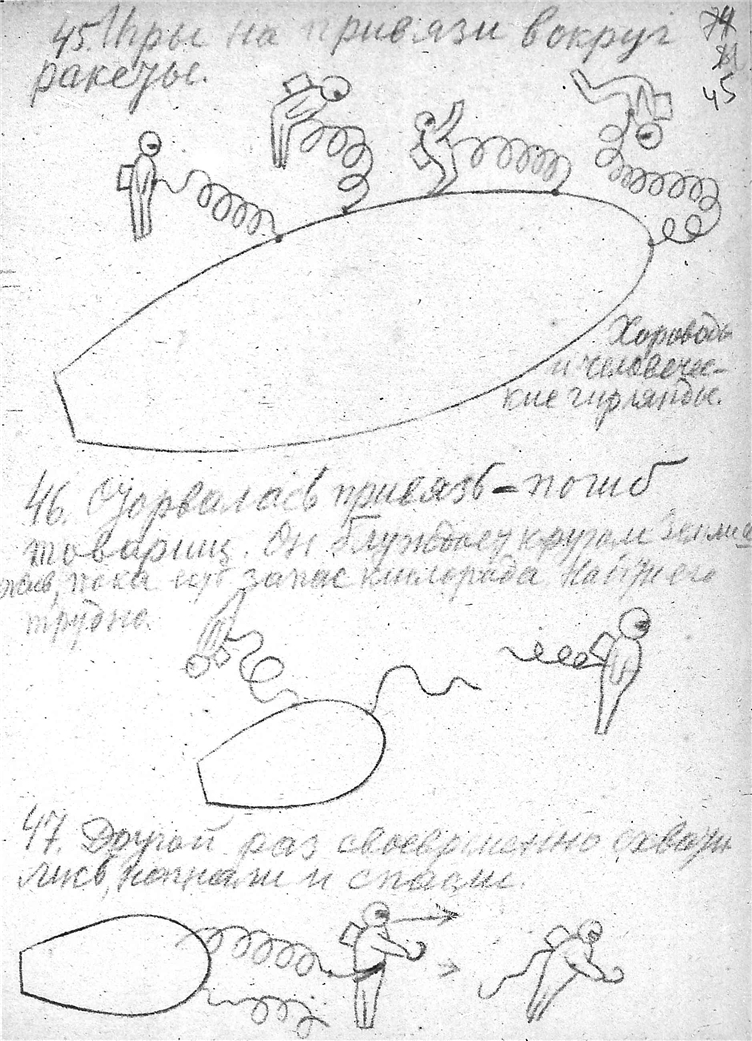 45. Игры на привязи вокруг
ракеты.
74
45
Хороводы
и человечес-
кие гирлянды.
46. Оторвалась привязь - погиб
товарищ. Он блуждает кругом Земли
жив, пока есть запас кислорода. Найти его
трудно.
47. Другой раз своевременно схвати-
лись, нагнали и спасли.